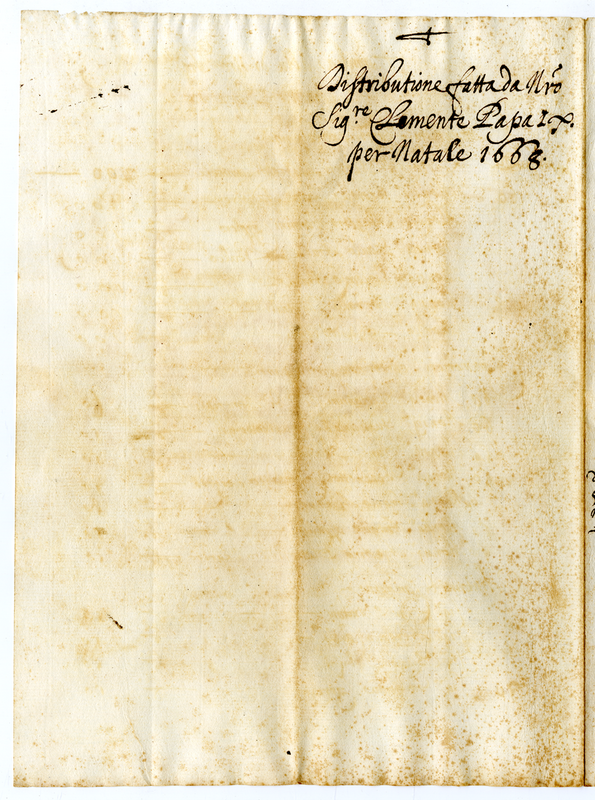 Distributione fatta da Nro
Sig.re Clemente Papa IX.
per Natale 1668.